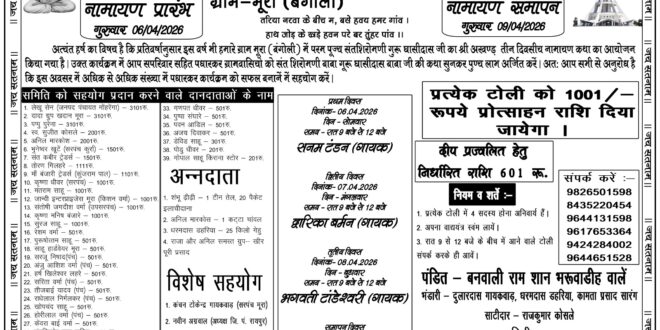 नामायण प्रारंभ
गुरुवार 06/04/2026
ग्राम-मूरा (बंगोली)
तरिया नरवा के बीच म, बसे हवय हमर गांव ।
हाथ जोड़ के खड़े हवय पर बर तुंहर पांव ।।
नामायण समापन
गुरुवार 09/04/2026
अत्यंत हर्ष का विषय है कि प्रतिवर्षानुसार इस वर्ष भी हमारे ग्राम मूरा ( बंगोली ) में परम पूज्य संतशिरोमणी गुरू घासीदास जी का श्री अखण्ड तीन दिवसीय नामायण कथा का आयोजन
किया गया है। उक्त कार्यक्रम में आप सपरिवार सहित पधारकर ग्रामवासियो को संत शिरोमणी बाबा गुरू घासीदास जी की कथा सुनकर पुण्य लाभ अर्जित करें। अतः आप सभी से अनुरोध है
कि इस अवसर में अधिक से अधिक संख्या में पधारकर कार्यक्रम को सफल बनाने में सहयोग करें।
।। जय सतनाम ।।
समिति को सहयोग प्रदान करने वाले दानदाताओं के नाम
1. लेखू सेन (जनपद पंचायत मोहरेंगा) - 3101रु.
2. यादा ध्रुप खदान मूरा - 3101रु.
3. पप्पू पुरैना - 3101रु.
4. स्व. सुजीत कोसले - 2001रु.
5. अनिल मारकोश - 2001रु.
6. मुनेश्वर खुंटे (सरपंच कुरा) - 1501रु.
7. संत कबीर ट्रेडर्स - 1501रु.
8. तोरण गिलहरे - 1111रु.
9. माँ भैरवी ट्रेडर्स (सुंजराम पाल) - 1101रु.
10. कृष्णा धीवर (सरपंच) - 1001रु.
11. मंतराम साहू - 1001रु.
12. जान्भी इन्टरप्राइजेस मूरा (किशन वर्मा) - 1001रु.
13. संतोषी जयदीश वर्मा (उपसरपंच) - 1001रु.
14. कृष्णा मनिष बंजारे - 1001रु.
15. सुरज साहू - 1001रु.
16. रेशम वर्मा - 501रु.
17. पुरूषोत्तम साहू - 501रु.
18. साहू हार्डवेयर मूरा - 501रु.
19. सरजू निषाद(पंच) - 501रु.
20. अंजु आशिश वर्मा (पंच) - 501रु.
21. हर्ष खिलेश्वर लहरे - 501रु.
22. लक्ष्मी धीवर (पंच) - 501रु.
23. तीजबाई यादव (पंच) - 501रु.
24. राधेलाल निर्मलकर (पंच) - 501रु.
25. छोटेलाल बांधे (पंच) - 501रु.
26. कचराबाई यादव (पंच) - 501रु.
27. ललित वर्मा (पंच) - 501रु.
33. गणपत धीवर - 501रु.
34. पुष्पा संघारे - 501रु.
35. पदमन आडिल - 501रु.
36. अजय दिवाकर - 501रु.
37. डोमेश यादव - 501रु.
38. पोडु धीवर - 501रु.
39. गोपाल साहू किराना स्टोर - 201रु.
अन्नदाता
1. शंभू ढीढ़ी - 1 टीन तेल, 20 पैकेट
इलायचीदाना
2. अनिल मारकोश - 1 कट्टा चांवल
3. धरमदास डहरिया - 25 किलो गेहूं
4. राजा और अनिल समस्त ग्रुप - खीर
पूरी प्रसाद
विशेष सहयोग
1. कंचन टोकेन्द्र गायकवाड़ (सरपंच मूरा)
2. नवीन अग्रवाल (अध्यक्ष जि. पं. रायपुर)
प्रथम दिवस
दिनांक- 06.04.2026
दिन - सोमवार
समय - रात 9 बजे से 12 बजे
सनम टंडन (गायक)
द्वितिय दिवस
दिनांक- 07.04.2026
दिन - मंगलवार
समय - रात 9 बजे से 12 बजे
द्वारिका बर्मन (गायक)
तृतिय दिवस
दिनांक- 08.04.2026
दिन - बुधवार
समय - रात 9 बजे से 12 बजे
भगवती टांडेश्वरी (गायक)
समापन दिवस
प्रत्येक टोली को 1001/-
रूपये प्रोत्साहन राशि दिया
जायेगा ।
दीप प्रज्वलित हेतु
निर्धारित राशि 601 रू.
नियम व शर्ते :-
1. प्रत्येक टोली में 4 सदस्य होना अनिवार्य हैं।
2. अपना वाद्ययंत्र स्वंम लावें।
3. रात 9 से 12 बजे के बीच में आने वाले टोली
संपर्क करके ही आयें।
संपर्क करें :-
9826501598
8435220454
9644131598
9617653364
9424284002
9644651528
पंडित - बनवाली राम शान भरूवाडीह वालें
भंडारी - दुलारदास गायकवाड़, धरमदास डहरिया, कामता प्रसाद सारंग
साटीदार - राजकुमार कोसले
।। जय सतनाम ।।